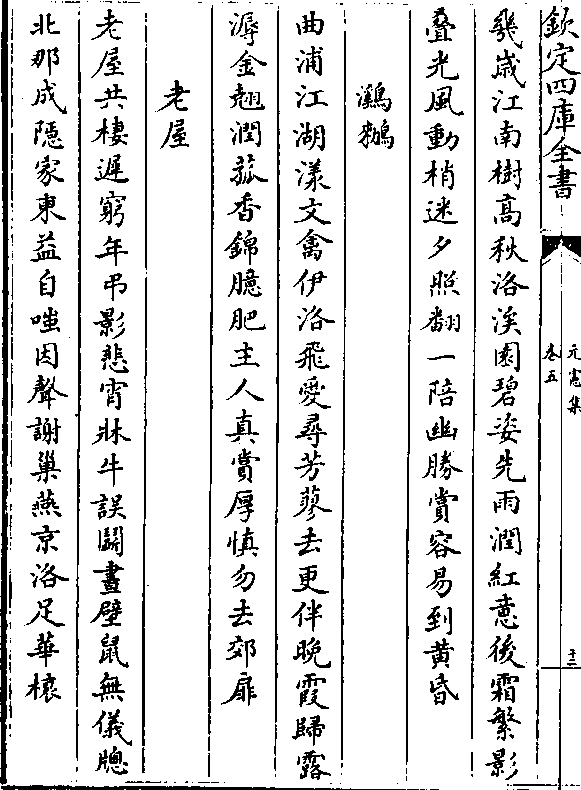 欽定四庫全書
元憲集
卷五
十三
幾歲江南樹高秋洛溪園碧姿先雨潤紅意後霜繁影
疊光風動梢迷夕照翻一陪幽勝賞容易到黄昏
鸂鶒
曲浦江湖漾文禽伊洛飛愛尋芳蓼去更伴晩霞歸露
潯金翹潤菰香錦臆肥主人真賞厚慎勿去郊扉
老屋
老屋共棲遲窮年弔影悲宵牀牛誤鬬晝壁鼠無儀牕
北那成隱家東益自嗤因聲謝巢燕京洛足華榱